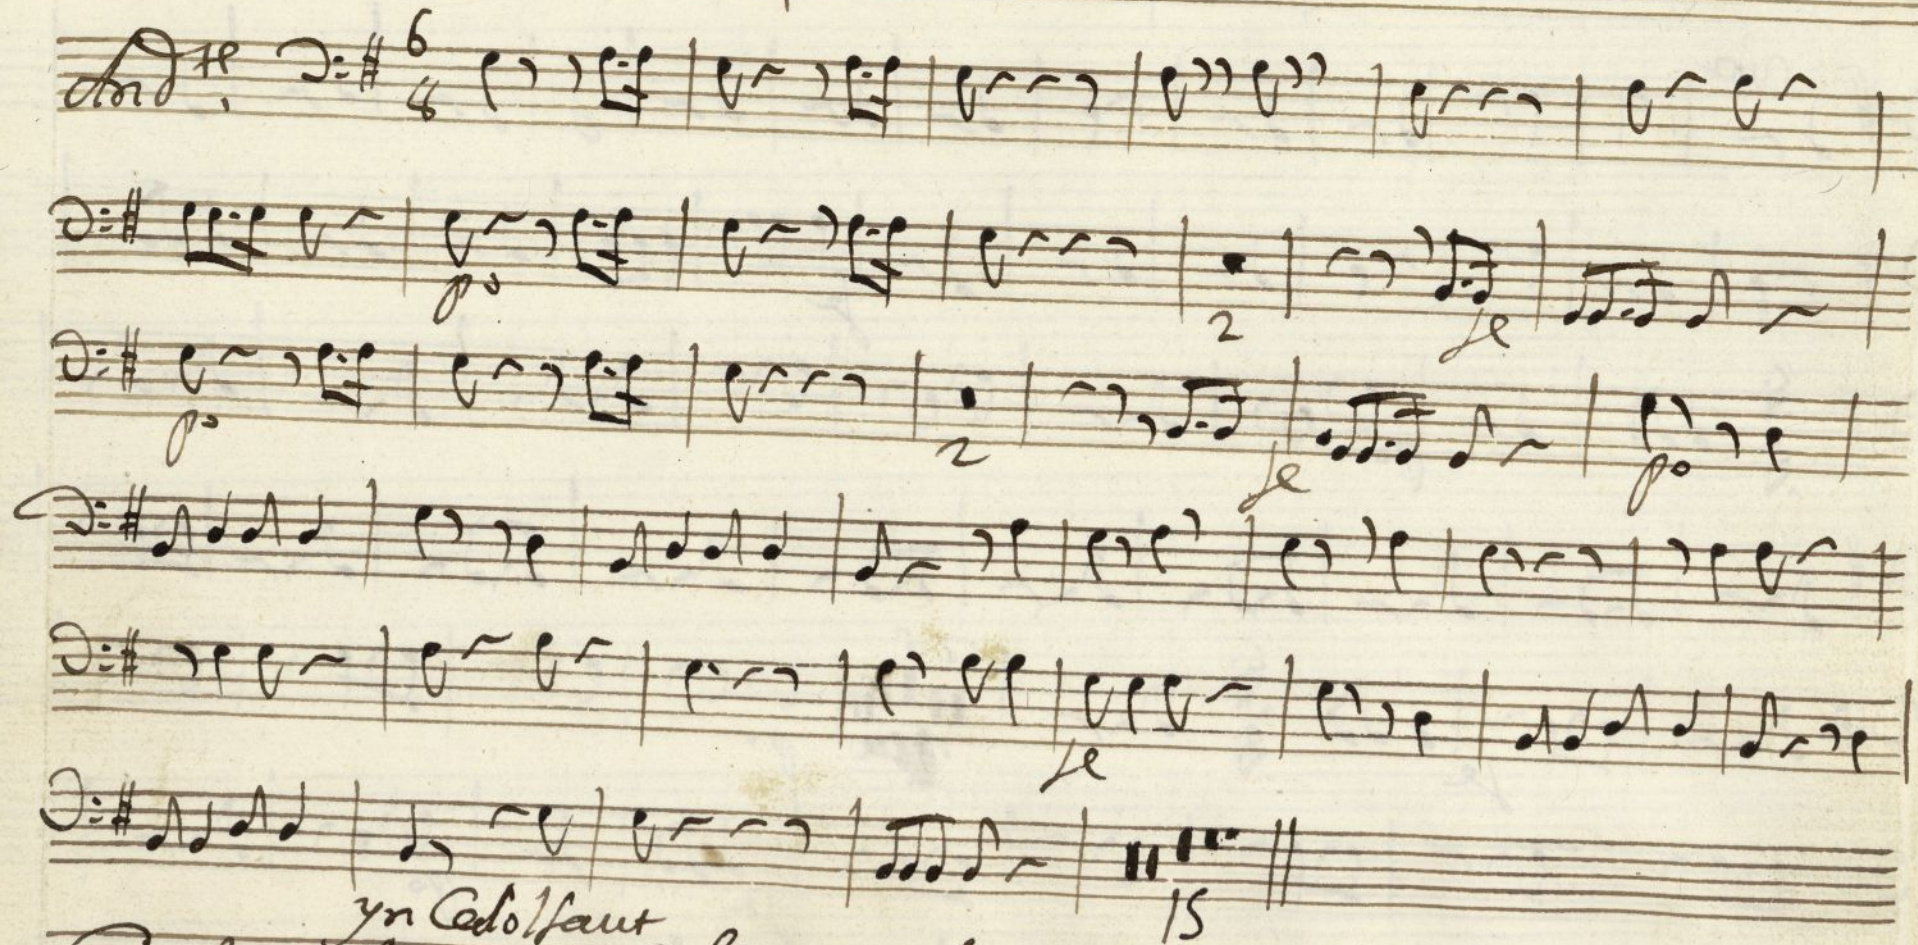 And.te 6 8
po 2 fe
po 2 fe po
fe
yn Cedolfaut 15